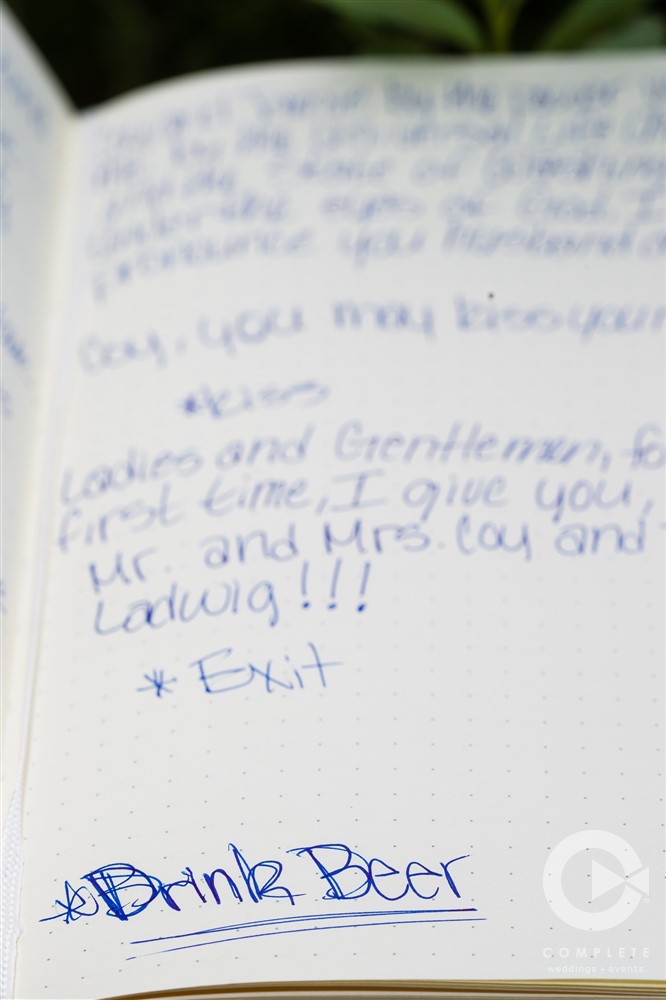 by the power
by the Universal Life
State of
under the eyes of God, I
pronounce you Husband
Coy, you may kiss your
*kiss
Ladies and Gentlemen, fo
first time, I give you,
Mr. and Mrs. Coy and
Ladwig!!!
* Exit
* Drink Beer
COMPLETE
weddings + events